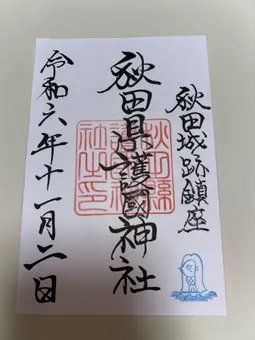 秋田城跡鎮座
秋田県護國神社
秋田縣護國神社之印
令和六年十一月二日